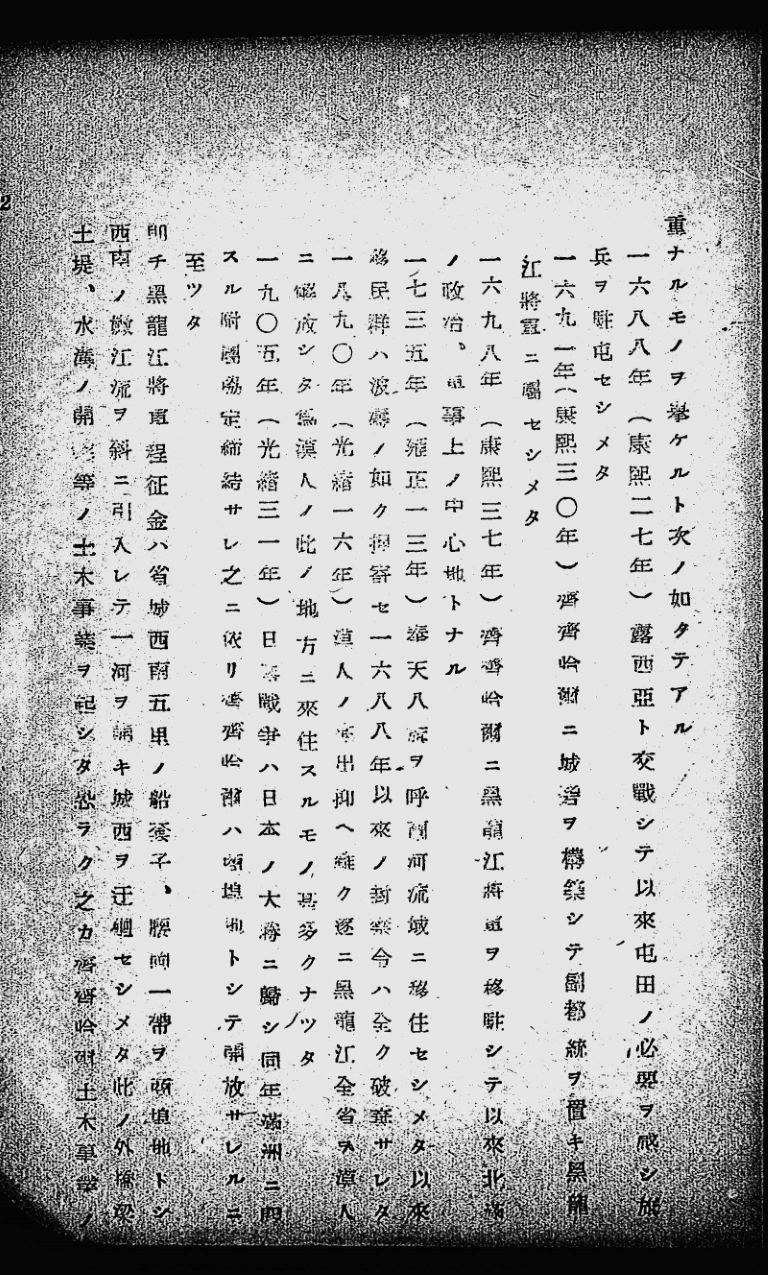 重ナルモノヲ擧ケルト次ノ如タテアル
一六八八年（康熙二七年）露西亞ト交戰シテ以來屯田ノ必要ヲ感シ旗
兵ヲ駐屯セシメタ
一六九一年（康熙三〇年）齊齊哈爾ニ城堡ヲ構築シテ副都統ヲ置キ黑龍
江將軍ニ屬セシメタ
一六九八年（康熙三七年）齊齊哈爾ニ黑龍江將軍ヲ移駐シテ以來北滿
ノ政治、軍事上ノ中心地トナル
一七三五年（雍正一三年）奉天八旗ヲ呼蘭河流域ニ移住セシメタ以來
移民群ハ波濤ノ如ク押寄セ一六八八年以來ノ封禁令ハ全ク破棄サレタ
一八九〇年（光緒一六年）漢人ノ出抑ヘ難ク遂ニ黑龍江全省ヲ漢人
ニ解放シタ爲漢人ノ此ノ地方ニ來住スルモノ甚多クナツタ
一九〇五年（光緒三一年）日露戰爭ハ日本ノ大勝ニ歸シ同年滿洲ニ四
スル附圖協定締結サレ之ニ依リ齊齊哈爾ハ商埠地トシテ開放サレルニ
至ツタ
即チ黑龍江將軍程征金ハ省城西南五里ノ船套子、腰崗一帶ヲ商埠地トシ
西南ノ嫩江流ヲ斜ニ引入レテ一河ヲ開キ城西ヲ迂廻セシメタ此ノ外橋梁
土堤、水溝ノ開等ノ土木事業ヲ起シタ恐ラク之カ齊齊哈爾土木事業ノ
2